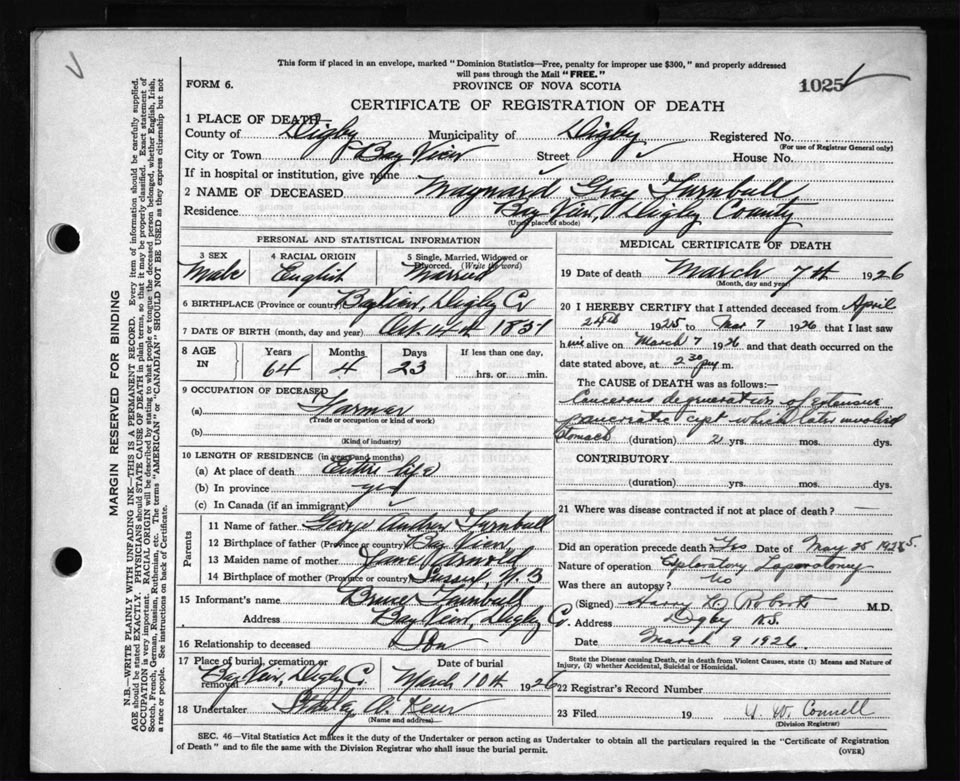 This form if placed in an envelope, marked "Dominion Statistics—Free, penalty for improper use $300," and properly addressed
will pass through the Mail "FREE."
FORM 6.
PROVINCE OF NOVA SCOTIA
1025
CERTIFICATE OF REGISTRATION OF DEATH
1 PLACE OF DEATH—
County of Digby Municipality of Digby Registered No.
(For use of Registrar General only)
City or Town of Bay View Street House No.
If in hospital or institution, give name
2 NAME OF DECEASED Maynard Grey Turnbull
Residence Bay View, Digby County
(Usual place of abode)
PERSONAL AND STATISTICAL INFORMATION
3 SEX 4 RACIAL ORIGIN 5 Single, Married, Widowed or
Divorced. (Write the word)
Male English Married
6 BIRTHPLACE (Province or country) Bay View, Digby Co
7 DATE OF BIRTH (month, day and year) Oct 14th
8 AGE IN Years Months Days If less than one day,
64 4 23 hrs. or min.
9 OCCUPATION OF DECEASED
(a) Farmer
(Trade or occupation or kind of work)
(b)
(Kind of industry)
10 LENGTH OF RESIDENCE (in years and months)
(a) At place of death Entire life
(b) In province yes
(c) In Canada (if an immigrant)
Parents
11 Name of father George Andrew Turnbull
12 Birthplace of father (Province or country) Bay View
13 Maiden name of mother Jane Arnold
14 Birthplace of mother (Province or country) Sussex N.B
15 Informant's name Bruce Turnbull
Address Bay View, Digby Co.
16 Relationship to deceased Son
17 Place of burial, cremation or removal Date of burial
Bay View, Digby Co. March 10th 1926
18 Undertaker Stanley
(Name and address)
MEDICAL CERTIFICATE OF DEATH
19 Date of death March 7th 1926
(Month, day and year)
20 I HEREBY CERTIFY that I attended deceased from April
24th 1925 to Mar 7 1926 that I last saw
him alive on March 7 1926 and that death occurred on the
date stated above, at 2 30 p.m.
The CAUSE of DEATH was as follows:—
Cancerous degeneration of extensive
pancreatic cyst which later involved
stomach (duration) 2 yrs. mos. dys.
CONTRIBUTORY.
(duration) yrs. mos. dys.
21 Where was disease contracted if not at place of death?
Did an operation precede death? Yes Date of May 25 1925
Nature of operation Exploratory Laporotomy
Was there an autopsy? No
(Signed) Harry M.D.
Address Digby NS.
Date March 9 1926.
State the Disease causing Death, or in death from Violent Causes, state (1) Means and Nature of
Injury, (2) whether Accidental, Suicidal or Homicidal.
22 Registrar's Record Number
23 Filed 19 Connell
(Division Registrar)
SEC. 46—Vital Statistics Act makes it the duty of the Undertaker or Person acting as Undertaker to obtain all the particulars required in the "Certificate of Registration
of Death" and to file the same with the Division Registrar who shall issue the burial permit.
(OVER)
MARGIN RESERVED FOR BINDING
N.B.—WRITE PLAINLY WITH UNFADING INK—THIS IS A PERMANENT RECORD. Every item of information should be carefully supplied.
AGE should be stated EXACTLY. PHYSICIANS should STATE CAUSE OF DEATH in plain terms, so that it may be properly classified. Exact statement of
OCCUPATION is very important. RACIAL ORIGIN will be described by stating to what people or tongue the deceased person belonged, whether English, Irish,
Scotch, French, German, Russian, Ruthenian, etc. The terms "AMERICAN" or "CANADIAN" SHOULD NOT BE USED as they express citizenship but not
a race or people. See instructions on back of Certificate.